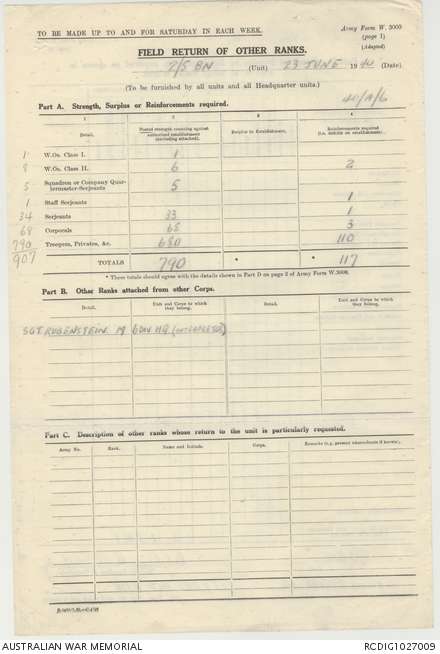 TO BE MADE UP TO AND FOR SATURDAY IN EACH WEEK.
Army Form W. 3009
(page 1)
(Adapted)
FIELD RETURN OF OTHER RANKS.
2/5 BN (Unit) 23 JUNE 1940 (Date)
(To be furnished by all units and all Headquarter units.)
40/A/6
Part A. Strength, Surplus or Reinforcements required.
1 2 3 4
Detail. Posted strength counting against authorized establishment (excluding attached). Surplus to Establishment. Reinforcements required (i.e. deficits on establishment).
1 W.Os. Class I. 1
8 W.Os. Class II. 6 2
5 Squadron or Company Quartermaster-Serjeants 5
1 Staff Serjeants 1
34 Serjeants 33 1
68 Corporals 65 3
790 Troopers, Privates, &c. 680 110
907 TOTALS 790 * * 117
* These totals should agree with the details shown in Part D on page 2 of Army Form W.3009.
Part B. Other Ranks attached from other Corps.
Detail. Unit and Corps to which they belong. Detail. Unit and Corps to which they belong.
SGT RUBENSTEIN M 6 DIV HQ
Part C. Description of other ranks whose return to the unit is particularly requested.
Army No. Rank. Name and Initials. Corps. Remarks (e.g. present whereabouts if known).
AUSTRALIAN WAR MEMORIAL
RCDIG1027009